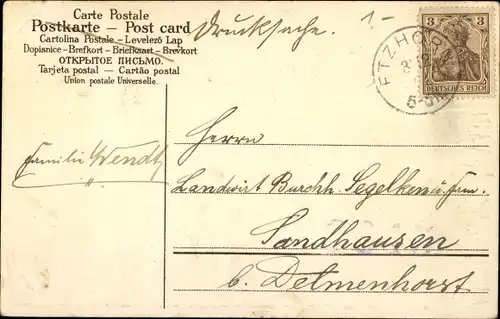 Carte Postale
Postkarte — Post card
Cartolina Postale — Levelező Lap
Dopisnice - Brefkort - Briefkaart - Brevkort
ОТКРЫТОЕ ПИСЬМО.
Tarjeta postal — Cartão postal
Union postale Universelle.
Drucksache.
1-
3 3
DEUTSCHES REICH
ETZHORN
5-6N
Familie Wendt
Herrn
Landwirt Burchh. Segelken u. Fam.
Sandhausen
b. Delmenhorst